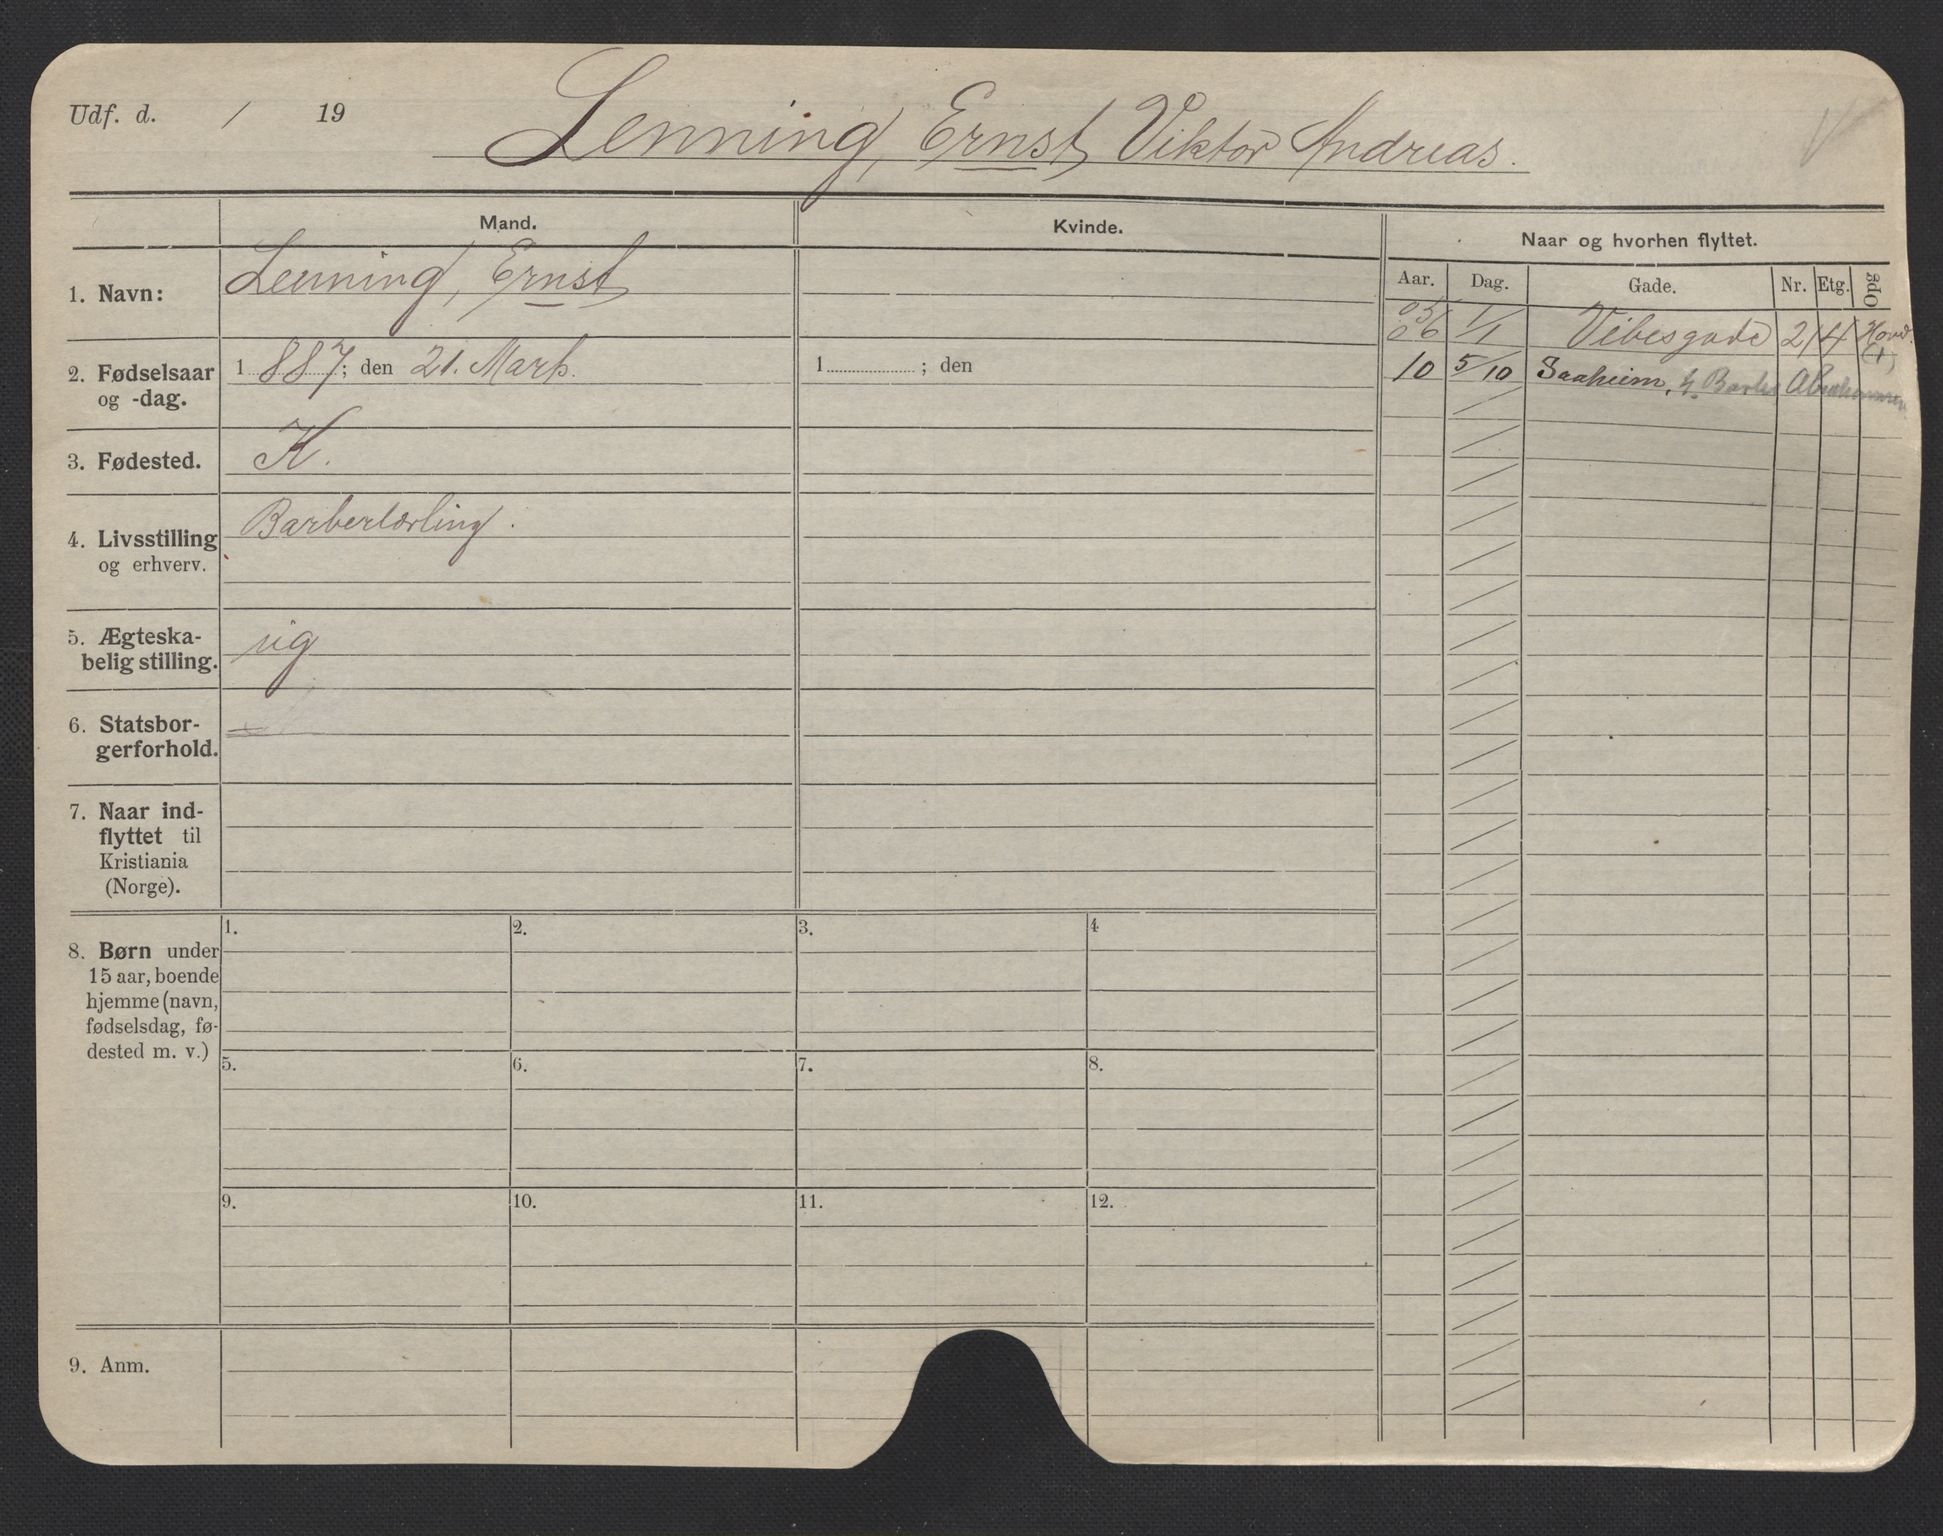 Udf. d. / 19
Lenning, Ernst Viktor Andreas.
Mand.
Kvinde.
Naar og hvorhen flyttet.
Aar. Dag. Gade. Nr. Etg. Opg
1. Navn: Lenning, Ernst
05/06 1/1 Vibesgade 21 4
2. Fødselsaar og -dag. 1887; den 21. Marts. 1 ; den
10 5/10 Saaheim,
3. Fødested. K.
4. Livsstilling og erhverv. Barberlærling.
5. Ægteska-
belig stilling. ug
6. Statsbor-
gerforhold.
7. Naar ind-
flyttet til
Kristiania
(Norge).
8. Børn under
15 aar, boende
hjemme (navn,
fødselsdag, fø-
dested m. v.)
1. 2. 3. 4
5. 6. 7. 8.
9. 10. 11. 12.
9. Anm.